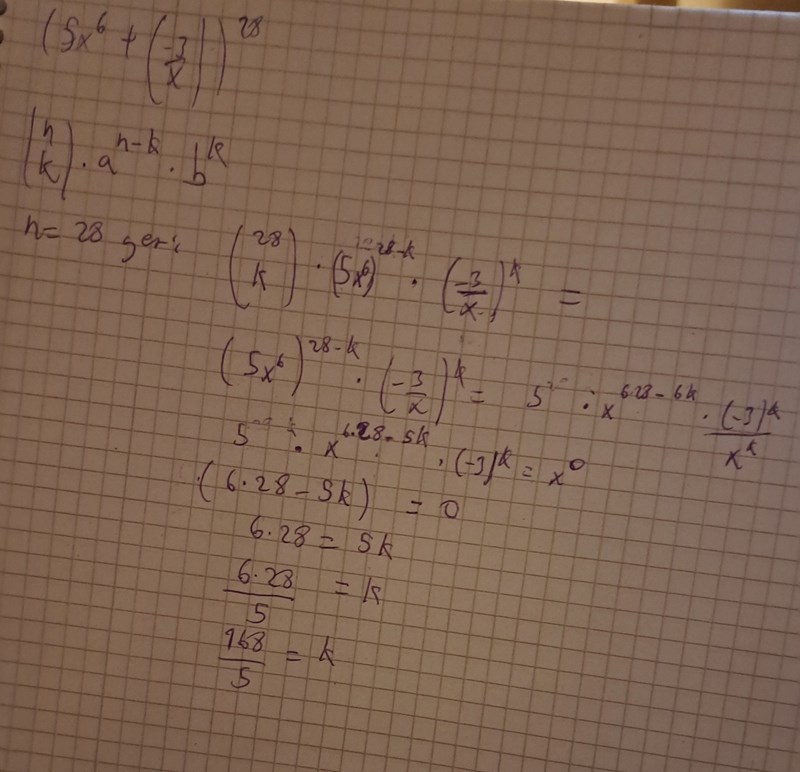 (5x⁶ + (-3/x))²⁸
(n k) · aⁿ⁻ᵏ · bᵏ
n = 28 ger: (28 k) · (5x⁶)²⁸⁻ᵏ · (-3/x)ᵏ =
(5x⁶)²⁸⁻ᵏ · (-3/x)ᵏ = 5 · x^(6·28-6k) · (-3)ᵏ/xᵏ
5 · x^(6·28-5k) · (-3)ᵏ = x⁰
(6·28-5k) = 0
6·28 = 5k
6·28/5 = k
168/5 = k